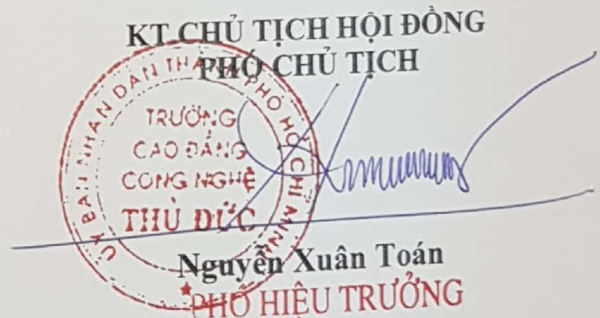 KT.CHỦ TỊCH HỘI ĐỒNG
PHÓ CHỦ TỊCH
ỦY BAN NHÂN DÂN THÀNH PHỐ HỒ CHÍ MINH
TRƯỜNG
CAO ĐẲNG
CÔNG NGHỆ
THỦ ĐỨC
Nguyễn Xuân Toán
PHÓ HIỆU TRƯỞNG